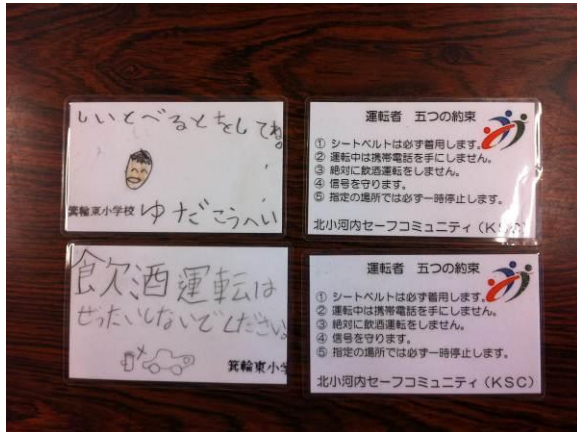 しいとべるとをしてね。
箕輪東小学校 ゆだこうへい
運転者 五つの約束
① シートベルトは必ず着用します。
② 運転中は携帯電話を手にしません。
③ 絶対に飲酒運転をしません。
④ 信号を守ります。
⑤ 指定の場所では必ず一時停止します。
北小河内セーフコミュニティ(KSC)
飲酒運転は
ぜったいしないでください。
箕輪東小学
運転者 五つの約束
① シートベルトは必ず着用します。
② 運転中は携帯電話を手にしません。
③ 絶対に飲酒運転をしません。
④ 信号を守ります。
⑤ 指定の場所では必ず一時停止します。
北小河内セーフコミュニティ(KSC)